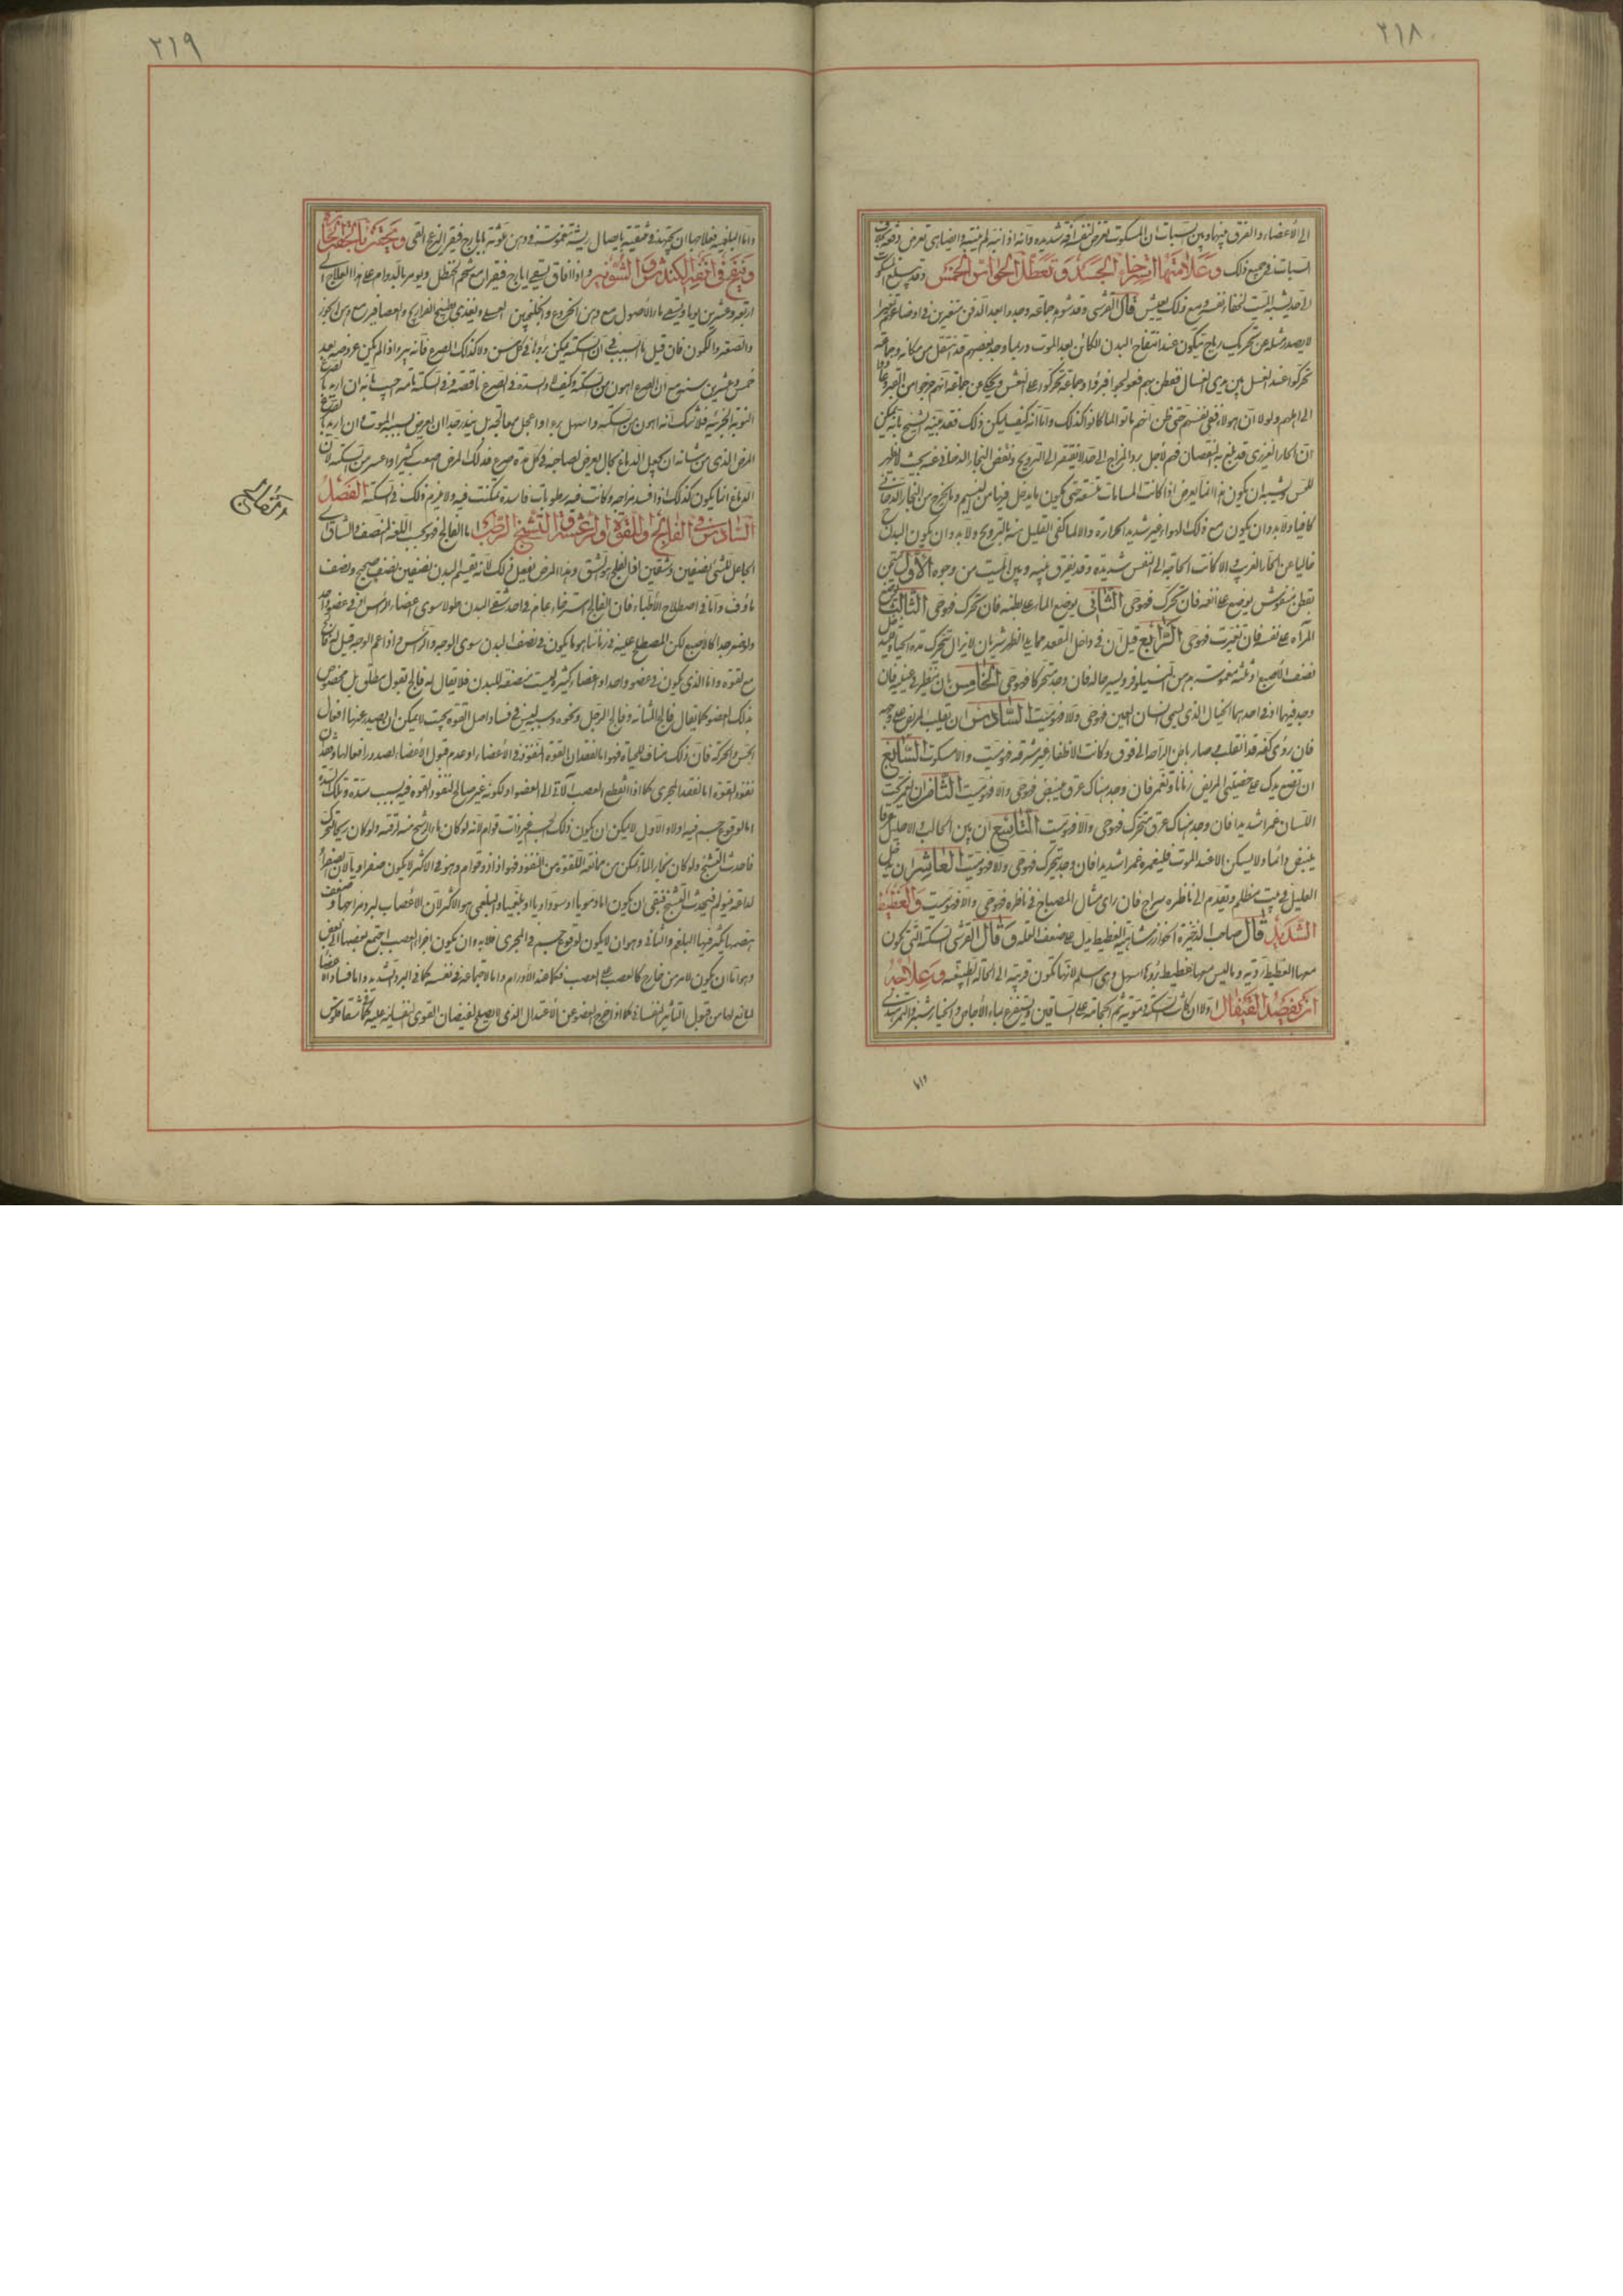 ٢١٨
الى الأعضاء والفرق بينها وبين السبات ان المسكوت تعرض لنفسه آفة شديدة وانه اذا انتبه لم ينتبه وايضا هى تعرض دفعة
السبات فى جميع ذلك وعلامتها استرخاء الجسد وتعطل الحواس الخمس وقد يبلغ السكوت
الى حد يشبه الميت لخفاء نفسه ومع ذلك يعيش قال القرشى وقد شوهد جماعة وجدوا بعد الدفن متغيرين فى اوضاعهم تغيرا
لا يصدر مثله عن تحريك رياح تتكون عند انتفاخ البدن الكائن بعد الموت وربما وجد بعضهم قد انتقل من مكانه وجماعة
تحركوا عند الغسل بين يدى الغسال ففطن بهم فعولجوا فبرؤا وجماعة تحركوا على النعش ويحكى عن جماعة انهم خرجوا من القبر
الى اهلهم ولولا ان هؤلاء خفى نفسهم حتى ظن انهم ماتوا لما كانوا كذلك واما انه كيف يمكن ذلك فقد بينه الشيخ بانه يمكن
ان الحار الغريزى قد بلغ به النقصان فيهم لأجل برد المزاج الى حد لا يفتقر الى الترويح ونفض البخار الدخانى بحيث لا يظهر
للحس ويشبه ان يكون هذا انما يعرض اذا كانت المسامات متسعة حتى يكون ما يدخل فيها من النسيم وما يخرج من البخار الدخانى
كافيا ولا بد وان يكون مع ذلك الهواء غير شديد الحرارة والا لما كفى القليل منه بالترويح ولا بد وان يكون البدن
خاليا عن الحار الغريب والا كانت الحاجة الى النفس شديدة وقد يفرق بينه وبين الميت من وجوه الأول
بقطن منفوش يوضع على انفه فان تحرك فهو حى الثانى يوضع الماء على بطنه فان تحرك فهو حى الثالث
المرآة على نفسه فان تغيرت فهو حى الرابع قيل ان فى داخل المقعد مما يلى الظهر شريان لا يزال يتحرك مدة الحياة
نصف الأصبع او ثلثه مغموسة بدهن النيلوفر وليسبر حاله فان وجد متحركا فهو حى الخامس بان ينظر فى عينيه فان
وجد فيهما او فى احدهما الخيال الذى يسمى انسان العين فهو حى والا فهو ميت السادس ان يقلب المريض على وجهه
فان رؤى كفه قد انقلب فى صار باطن الراحة الى فوق وكانت الأظفار غير مشرقة فهو ميت والا مسكوت السابع
ان تضع يدك على خصيتى المريض زمانا وتغمر فان وجد هناك عرق ينبض فهو حى والا فهو ميت الثامن ان يغمر تحت
اللسان غمرا شديدا فان وجد هناك عرق متحرك فهو حى والا فهو ميت التاسع ان بين الحالب والاحليل عرقا
ينبض دائما ولا يسكن الا عند الموت فليغمره غمرا شديدا فان وجد يتحرك فهو حى والا فهو ميت العاشر ان يدخل
العليل فى بيت مظلم ويقدم الى ناظره سراج فان راى مثال المصباح فى ناظره فهو حى والا فهو ميت والغطيط
الشديد قال صاحب الذخيرة الخوارزمشاهية الغطيط يدل على ضعف العلة وقال القرشى السكتة التى يكون
معها الغطيط ردية وما ليس معها غطيط بروها اسهل وهى اسلم لانها تكون قريبة الى الحالة الطبيعية وعلاجه
ان يفصد القيفال اولا ان كانت السكتة دموية ثم الحجامة على الساقين ويستفرغ بماء الأجاص والخيار شنبر والتمر هندى
واما
٢١٩
واما البلغمية فعلاجها ان يجتهد فى تنقيته بايصال ريشة مغموسة فى دهن ملوثة بايارج فيقرا لنزع القى ويحقن بالحقنة الحادة
وينفخ فى انفه الكندش والشونيز فاذا افاق يسقى ايارج فيقرا مع شحم الحنظل ويؤمر بالدوام على هذا العلاج الى
اربعة وعشرين يوما ويسقى ماء الأصول مع دهن الخروع والجلنجبين العسلى ويغذى بطبيخ الفراريج والعصافير مع دهن الجوز
والصعتر والكمون فان قيل ما السبب فى ان السكتة يمكن برؤها فى كل سن ولا كذلك الصرع فانه يبرا اذا لم يكن عروضه بعد
خمس وعشرين سنة مع ان الصرع اهون من السكتة وكيف لا والسدة فى الصرع ناقصة وفى السكتة تامة اجيب بانه ان اريد بالصرع
النوبة الجزئية فلا شك انه اهون من السكتة واسهل بروا واعجل معالجة بل يندر جدا ان يعرض بسببه الموت وان اريد بالصرع
المرض الذى من شانه ان يجعل الدماغ بحال يعرض لصاحبه فى كل مدة صرع فذلك المرض اصعب كثيرا واعسر من السكتة لان
الدماغ انما يكون كذلك اذا فسد مزاجه وكانت فيه رطوبات فاسدة تمكنت فيه ولا يلزم ذلك فى السكتة الفصل
السادس فى الفالج واللقوة والرعشة والتشنج الرطب اما الفالج فهو بحسب اللغة المنصف والشاق اى
الجاعل للشئ نصفين وشقين اذ الفلج هو الشق وهذا المرض يفعل ذلك لانه يقسم البدن نصفين نصف صحيح ونصف
ماؤف واما فى اصطلاح الأطباء فان الفالج استرخاء عام فى احد شقى البدن طولا سوى اعضاء الرأس او فى عضو واحد
ولو صغر جدا كالاصبع لكن المصطلح عليه فى زماننا هو ما يكون فى نصف البدن سوى الوجه والرأس واذا عم الوجه قيل له فالج
مع لقوة واما الذى يكون فى عضو واحد او اعضاء كثيرة ليست منصفة للبدن فلا يقال له فالج بقول مطلق بل مخصوص
بذلك العضو كما يقال فالج المثانة وفالج الرجل ونحوه وسببه ليس فساد اصل القوة بحيث لا يمكن ان يصدر عنها افعال
الحس والحركة فان ذلك مناف للحياة فهو اما لفقدان القوة لنفوذ فى الاعضاء او عدم قبول الأعضاء لصدور افعالها
نفوذ القوة اما لفقد المجرى كما اذا انقطع العصب الآتى الى العضو او لكونه غير صالح لنفوذ القوة فيه بسبب سدة وتلك السدة
اما لوقوع جسم فيه اولا والأول لا يمكن ان يكون ذلك الجسم غير ذات قوام لانه لو كان ماء لارتشح منه لرقته ولو كان ريحا
فاحدث التشنج ولو كان بخارا لما تمكن من ممانعة القوة من النفوذ فهو اذا ذو قوام وهو فى الأكثر لا يكون صفراويا لان الصفراء
لذاعة فيحدث التشنج فبقى ان يكون اما دمويا او سوداويا او بلغميا والبلغمى هو الاكثر لان الأعصاب لبرد مزاجها وضعف
هضمها يكثر فيها البلغم والثانى وهو ان لا يكون لوقوع جسم فى المجرى فلا بد وان يكون اجزاء العصب اجتمع بعضها الى بعض
وهو اما ان يكون لامر من خارج كما لعصب على العصب فكما عند الأورام واما لاجتماعه فى نفسه كما فى البرد الشديد واما فساد الأعضاء
المانع لها من قبول التاثير النفسانى فكما اذا خرج العضو عن الأعتدال الذى لا يصلح لفيضان القوى النفسانية عليه